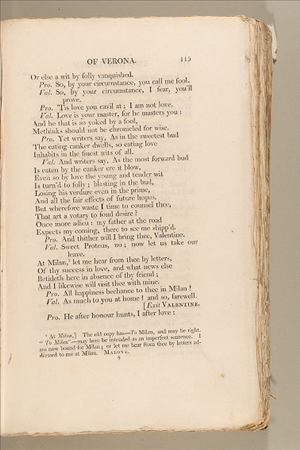 OF VERONA. 115
Or else a wit by folly vanquished.
Pro. So, by your circumstance, you call me fool.
Val. So, by your circumstance, I fear, you'll
prove.
Pro. 'Tis love you cavil at; I am not love.
Val. Love is your master, for he masters you:
And he that is so yoked by a fool,
Methinks should not be chronicled for wise.
Pro. Yet writers say, As in the sweetest bud
The eating canker dwells, so eating love
Inhabits in the finest wits of all.
Val. And writers say, As the most forward bud
Is eaten by the canker ere it blow,
Even so by love the young and tender wit
Is turn'd to folly; blasting in the bud,
Losing his verdure even in the prime,
And all the fair effects of future hopes.
But wherefore waste I time to counsel thee,
That art a votary to fond desire?
Once more adieu: my father at the road
Expects my coming, there to see me shipp'd.
Pro. And thither will I bring thee, Valentine.
Val. Sweet Proteus, no; now let us take our
leave.
At Milan,' let me hear from thee by letters,
Of thy success in love, and what news else
Betideth here in absence of thy friend;
And I likewise will visit thee with mine.
Pro. All happiness bechance to thee in Milan!
Val. As much to you at home! and so, farewell.
[Exit VALENTINE.
Pro. He after honour hunts, I after love:
' At Milan,] The old copy has—To Milan, and may be right.
"To Milan"—may here be intended as an imperfect sentence. I
am now bound for Milan; or let me hear from thee by letters ad-
dressed to me at Milan. MALONE.